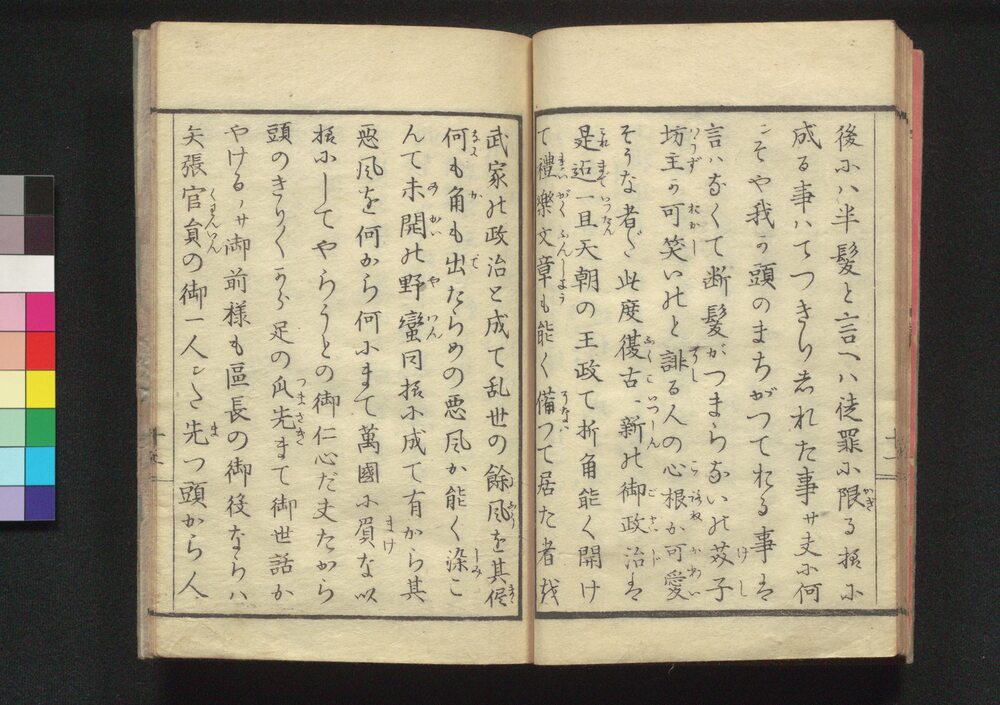 後にハ半髪と言ヘハ徒罪に限る様に
成る事ハてつきり志れた事サ夫に何
こそや我か頭のまちがつてれる事は
言ハなくて断髪がつまらないの芥子
坊主か可笑いのと誹る人の心根か可愛
そうな者だ此度復古一新の御政治は
是迄一旦天朝の王政て折角能く開け
て禮樂文章も能く備つて居た者を
武家の政治と成て乱世の餘風を其侭
何も角も出たらめの悪風か能く染こ
んて未開の野蛮同様に成て有から其
悪風を何から何にまて萬國に眉な以
様にしてやらうとの御仁心だ夫たから
頭のきりくから足の爪先まて御世話か
やけるノサ御前様も區長の御後ならハ
矢張官員の御一人だ先つ頭から人